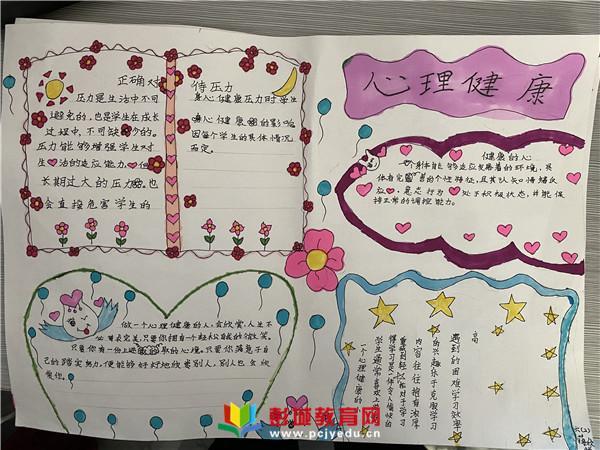 心理健康
正确对待压力
压力是生活中不可
避免的,也是学生在成长
过程中,不可缺少的。
压力能够增强学生对
生活的适应能力。但
长期过大的压力,也
会直接危害学生的
身心健康压力对学生
身心健康的影响
因每个学生的具体情况
而定。
健康的心
身体能够适应发展着的环境,具
有完善的个性特征,且其认知情绪反
应,意志行为处于积极状态,并能保
持正常的调控能力。
做一个心理健康的人,会欣赏,人生不
必事求完美,只要你拥有一份轻松自然的微笑。
只要你有一份上进的心境。只要你满意于自
己的踏实努力,便能够好好地欣赏别人,别人也会欣
赏你。
一个心理健康的
学生通常喜欢上学
得学习是一件令人愉快的
重感到轻松对于学习
内容往往抱着浓厚
的兴趣乐于克服学习
遇到的困难学习效率
高
六(2)
彭城教育网
www.pcjyedu.cn